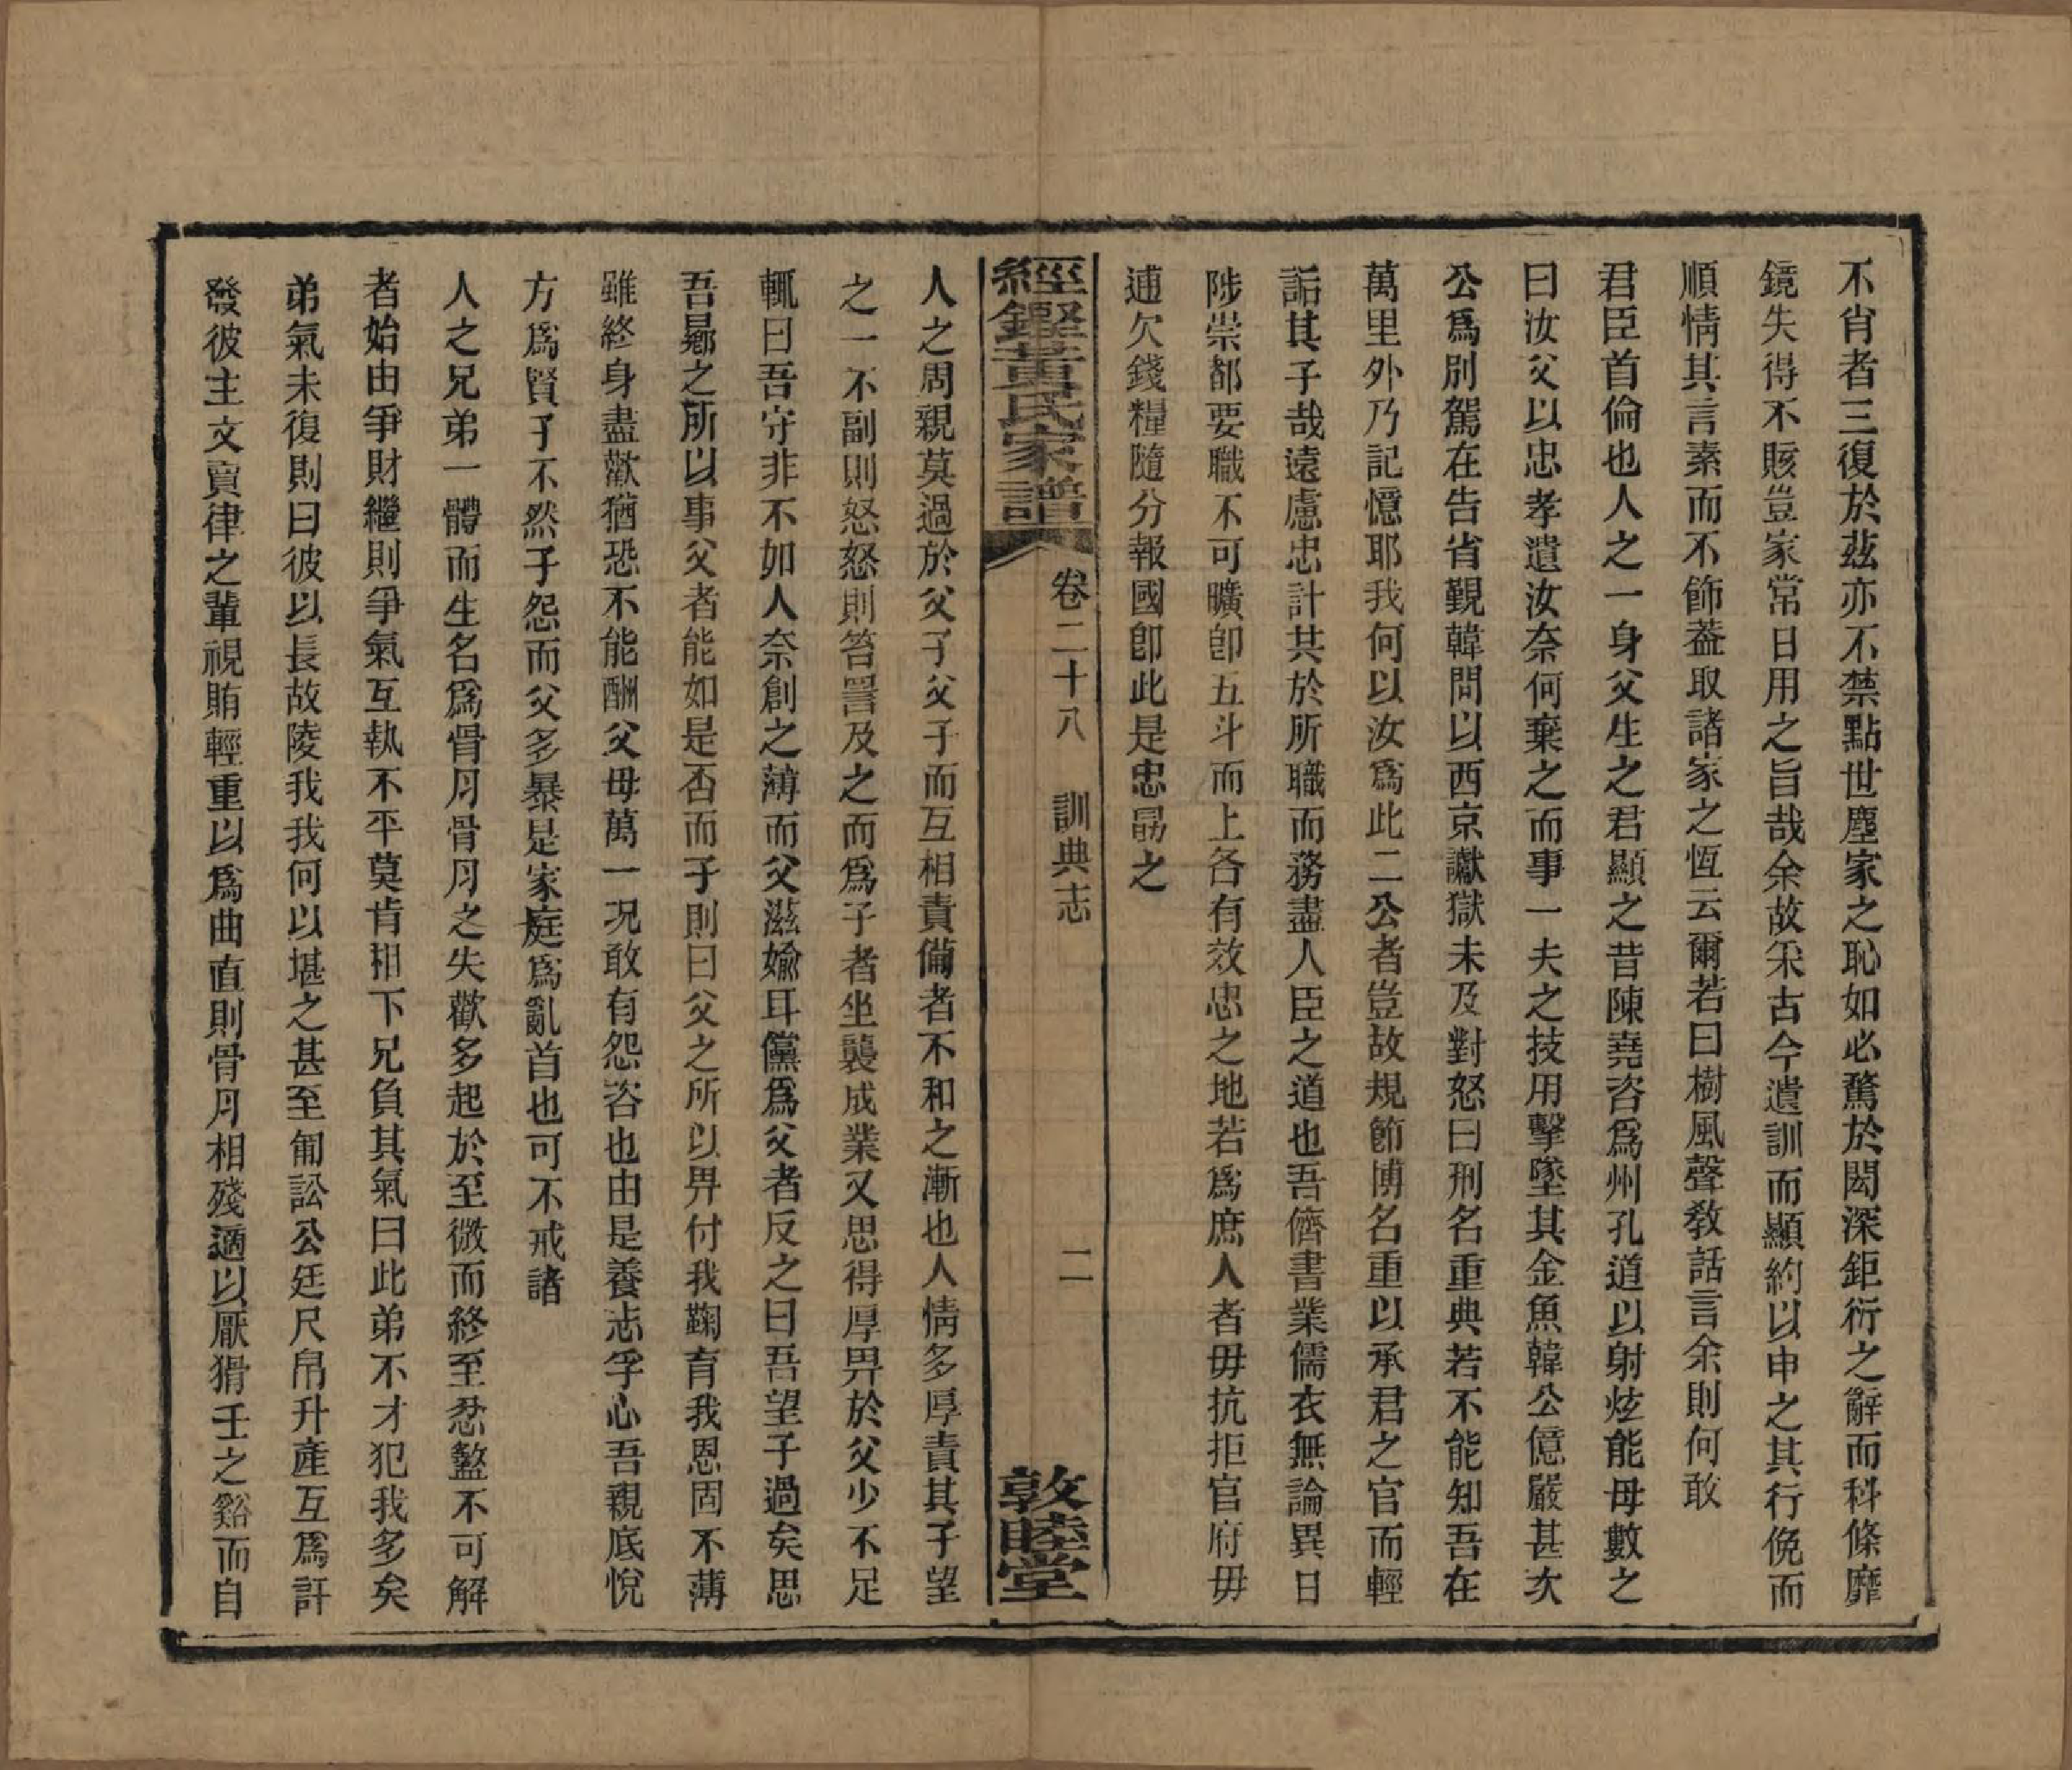 不肖者三復於茲亦不禁點世塵家之恥如必騖於閎深鉅衍之辭而科條靡
鏡失得不賅豈家常日用之旨哉余故采古今遺訓而顯約以申之其行俛而
順情其言素而不飾葢取諸家之恆云爾若曰樹風聲教話言余則何敢
君臣首倫也人之一身父生之君顯之昔陳堯咨爲州孔道以射炫能母數之
曰汝父以忠孝遺汝奈何棄之而事一夫之技用擊墜其金魚韓公億嚴甚次
公爲別駕在告省覲韓問以西京讞獄未及對怒曰刑名重典若不能知吾在
萬里外乃記憶耶我何以汝爲此二公者豈故規節博名重以承君之官而輕
詬其子哉遠慮忠計共於所職而務盡人臣之道也吾儕書業儒衣無論異日
陟崇都要職不可曠卽五斗而上各有效忠之地若爲庶人者毋抗拒官府毋
逋欠錢糧隨分報國卽此是忠勗之
經鏗黃氏家譜 卷二十八 訓典志 二 敦睦堂
人之周親莫過於父子父子而互相責備者不和之漸也人情多厚責其子望
之一不副則怒怒則笞詈及之而爲子者坐襲成業又思得厚畀於父少不足
輒曰吾守非不如人奈創之薄而父滋媮耳儻爲父者反之曰吾望子過矣思
吾曏之所以事父者能如是否而子則曰父之所以畀付我鞠育我恩固不薄
雖終身盡歡猶恐不能酬父母萬一况敢有怨咨也由是養志孚心吾親底悅
方爲賢子不然子怨而父多暴是家庭爲亂首也可不戒諸
人之兄弟一體而生名爲骨月骨月之失歡多起於至微而終至忿盭不可解
者始由爭財繼則爭氣互執不平莫肯相下兄負其氣曰此弟不才犯我多矣
弟氣未復則曰彼以長故陵我我何以堪之甚至匍訟公廷尺帛升產互爲訐
發彼主文賣律之輩視賄輕重以爲曲直則骨月相殘適以厭猾壬之谿而自